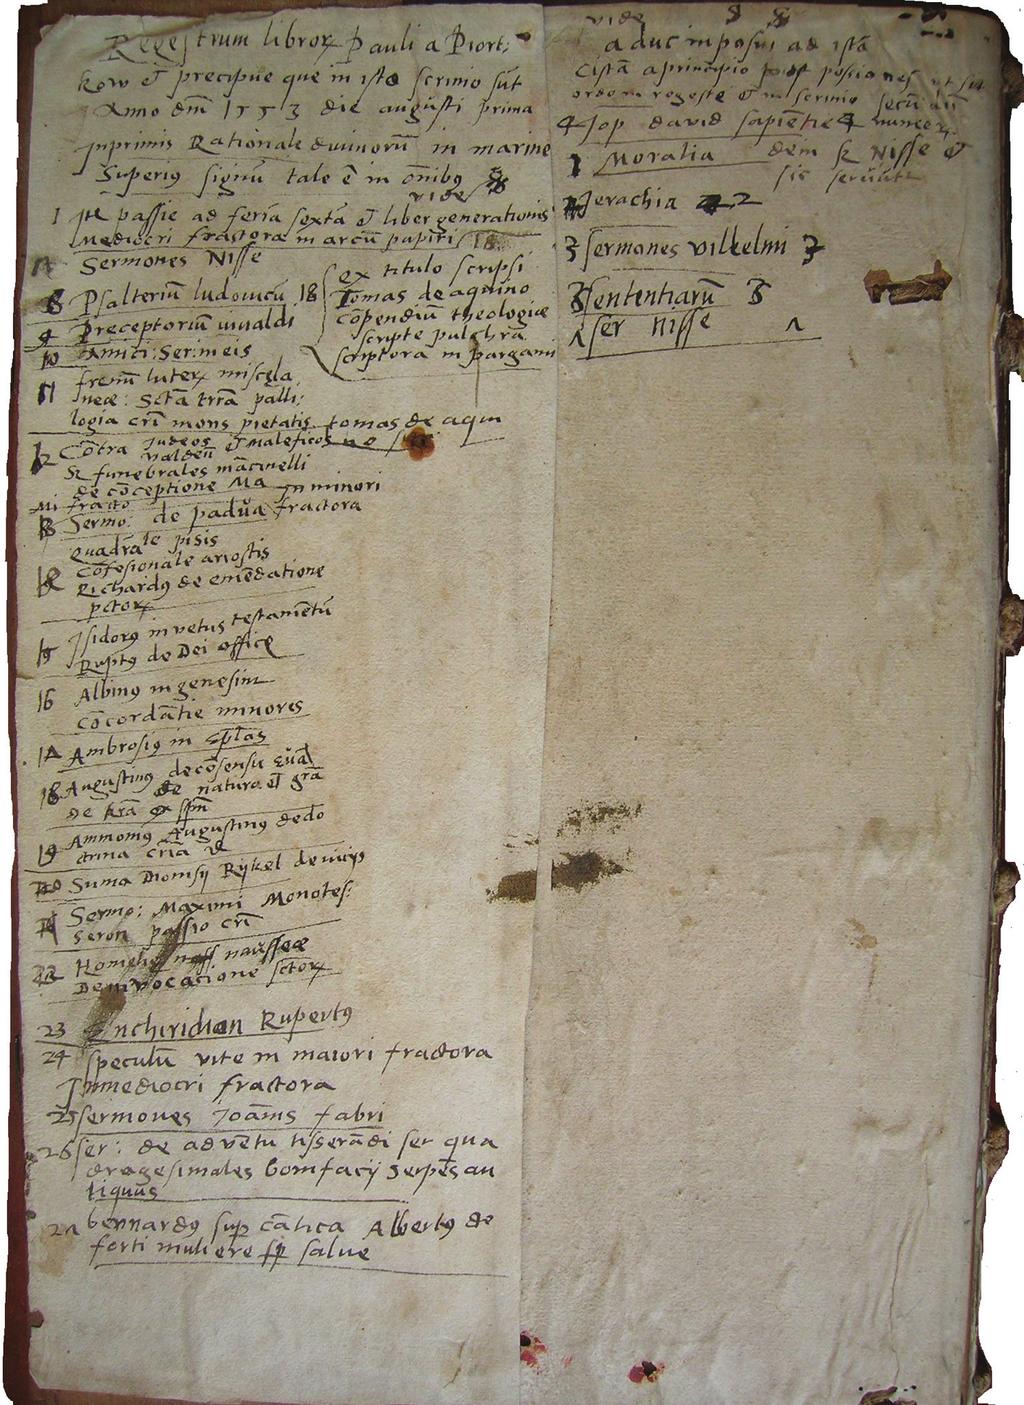 Regestrum libror Pauli a Piort:
kow et precipue que in isto scrinio sut
Anno dm 1553 die augusti prima
Inprimis Rationale divinoru in marine
Superius signu tale e in onibus 8
vide
1 Ite passie ad feria sexta et liber generationis
Mediocri fractora in arcu papiri
Sermones Nisse
8 Psalteriu ludovicu 18
ex titulo scripsi
Tomas de aquino
copendiu theologice
scripte pulchra
scriptora in pargami
9 Preceptoriu vivaldi
10 Amici: Ser: meis
11 frenu luter miscela
nee: Scta trra palli:
logia cri mons pietatis tomas de aqui
12 Cotra Judeos et maleficos
valdeu
Sz funebrales macinelli
de coceptione Ma In minori
fracto
13 Sermo: de padua fractora
quadrale pisis
Cofesionale ariostis
Richardus de emedatione
pctor
15 Isidorus in vetus testametu
Ruptus de Dei office
16 Albinus in genesim
Cocordatie minores
17 Ambrosius in Eplas
18 Augustinus de cosensu eva
de natura et gra
de
19 Ammonius Augustinus dedo
ctrina cria
20 Suma Dionisy Rykel de vicys
21 Sermo: Maximi Monotes:
Seron passio cri
22 Homelie nausseae
De invocacione sctor
23 Enchiridion Rupertus
24 speculu vite in maiori fractora
In mediocri fractora
25 sermones Joanis fabri
26 ser: de advetu tisseradi ser qua
dragesimales bonifacij serpes an
tiquus
27 bernardus sup catica Albertus de
forti muliere sp salve
vide 8 8
aduc inposui ad ista
Cista a principio
ordo in regeste et in scrinio secu
4 Jop david sapietie 4 numer
1 Moralia Idem Sz Nisse et
sic servut
Jerachia 2
3 sermones vilhelmi 3
Sententiaru 3
ser Nisse